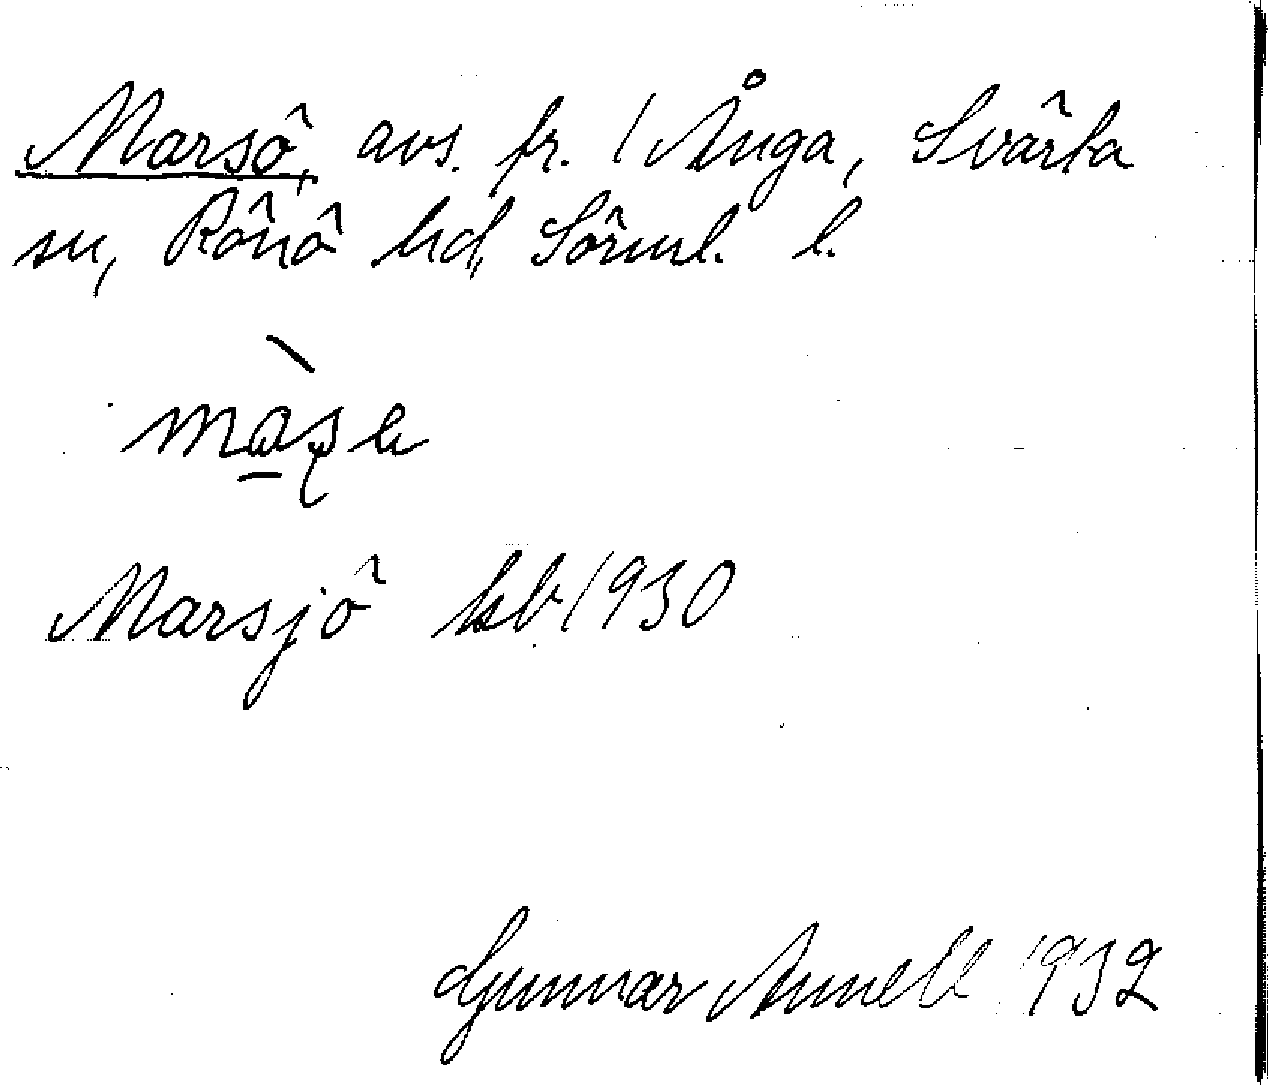 Marsö, avs. fr. 1 Ånga, Svärta
sn, Rönö hd, Sörml. l.
Marsjö kb 1930
Gunnar Annell 1932